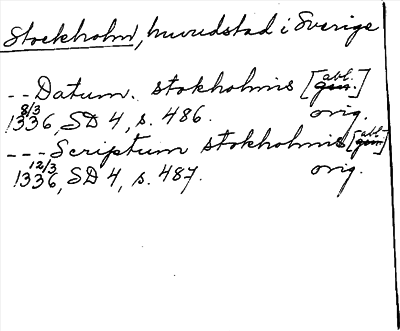 Stockholm, huvudstad i Sverige
-- Datum. stokholmis [abl.]
8/3 1336, SD 4, s. 486. orig.
--- Scriptum stokholmis [abl.]
12/3 1336, SD 4, s. 487. orig.